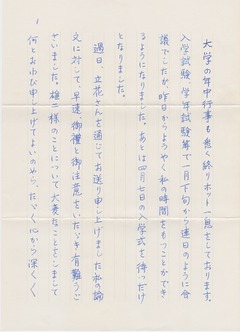 大学の年中行事も漸く終りホット一息をしております。
入学試験、学年試験等で一月下旬から連日のように会
議でしたが、昨日からようやく私の時間をもつことができ
るようになりました。あとは四月七日の入学式を待つだけ
となりました。
過日、立花さんを通じてお送り申し上げました私の論
文に対して、早速、御禮と御注意をいたゞき有難うご
ざいました。雄二様のことについて大変なことをしまして
何とお わび申し上げてよいのやら、たゞ〱心から深く〱